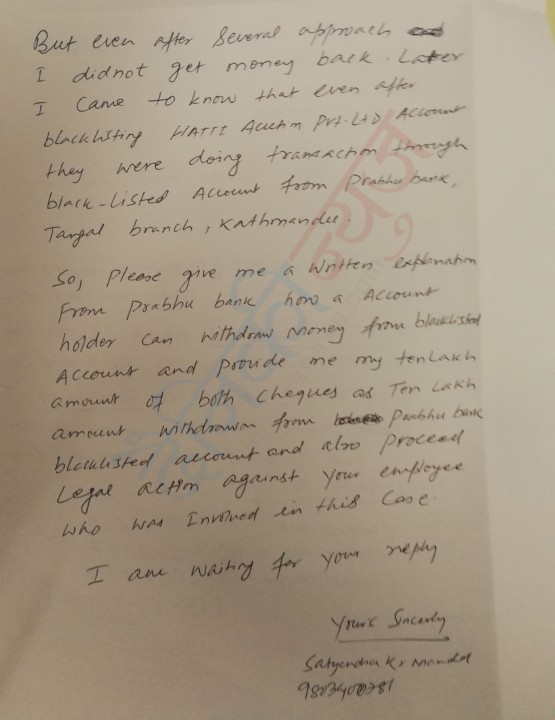 But even after several approach
I didnot get money back. Later
I came to know that even after
blacklisting HATTI Auctm Pvt. Ltd Account
they were doing transaction through
black-listed Account from Prabhu bank,
Tangal branch, Kathmandu.
So, Please give me a written explanation
From Prabhu bank how a Account
holder can withdraw money from blacklisted
Account and provide me my ten Lakh
amount of both cheques as Ten Lakh
amount withdrawn from Prabhu bank
blacklisted account and also proceed
Legal action against your employee
who was Involved in this case.
I am waiting for your reply
Your's Sincerly
Satyendra Kr Mandal